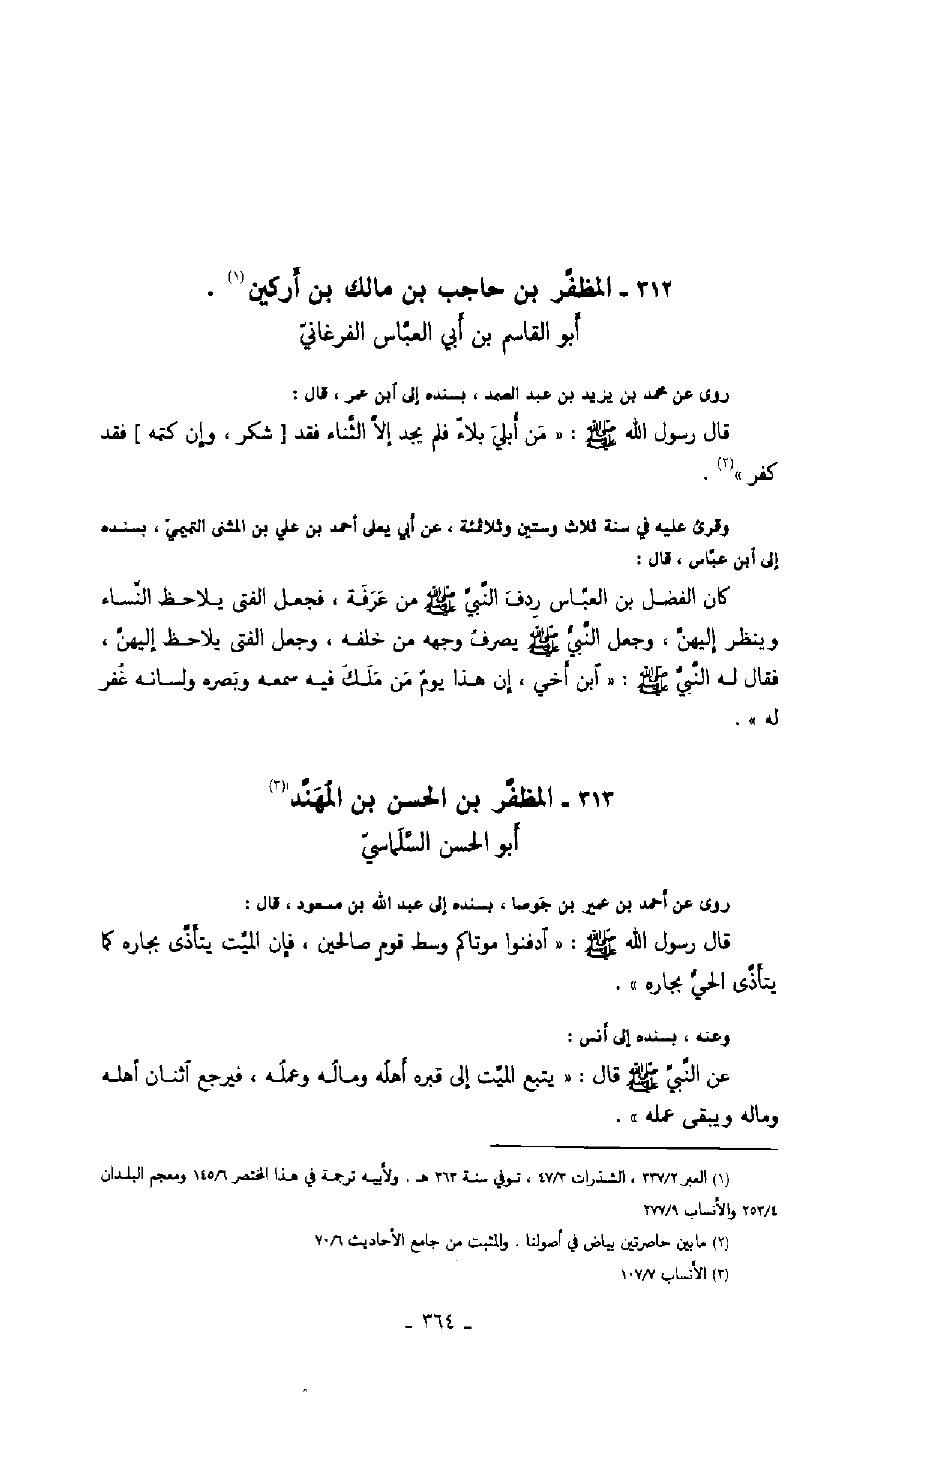 ٣١٢ ـ المظفَّر بن حاجب بن مالك بن أَركين(١) .
أَبو القاسم بن أَبي العبَّاس الفرغانيّ
روى عن محمد بن يزيد بن عبد الصمد ، بسنده إلى آبن عمر ، قال :
قال رسول الله ﷺ : « مَن أُبليَ بلاءً فلم يجد إلاَّ الثَّناء فقد [ شكر ، وإن كتمه ] فقد
كفر »(٢) .
وقرئ عليه في سنة ثلاث وستين وثلاثمئة ، عن أبي يعلى أحمد بن علي بن المثنى التميميّ ، بسنده
إلى آبن عبَّاس ، قال :
كان الفضل بن العبَّاس رِدفَ النَّبيِّ ﷺ من عَرَفَة ، فجعل الفتى يلاحظ النِّساء
وينظر إليهنَّ ، وجعل النَّبيُّ ﷺ يصرفُ وجهه من خلفه ، وجعل الفتى يلاحظ إليهنَّ ،
فقال له النَّبيُّ ﷺ : « آبن أَخي ، إن هذا يومٌ مَن مَلَكَ فيه سمعه وبَصره ولسانه غُفر
له » .
٣١٣ ـ المظفَّر بن الحسن بن المُهَنَّد(٣)
أَبو الحسن السَّلَماسيّ
روى عن أحمد بن عمير بن جَوصا ، بسنده إلى عبد الله بن مسعود ، قال :
قال رسول الله ﷺ : « آدفنوا موتاكم وسط قومٍ صالحين ، فإن الميِّت يتأَذَّى بجاره كما
يتأَذَّى الحيُّ بجاره » .
وعنه ، بسنده إلى أنس :
عن النَّبيِّ ﷺ قال : « يتبع الميِّت إلى قبره أَهلُه ومالُه وعملُه ، فيرجع آثنان أهله
وماله ويبقى عمله » .
(١) العبر ٣٣٧/٢ ، الشذرات ٤٧/٣ ، توفي سنة ٣٦٣ هـ . ولأبيه ترجمة في هذا المختصر ١٤٥/٦ ومعجم البلدان
٢٥٣/٤ والأنساب ٢٧٧/٩
(٢) مابين حاصرتين بياض في أصولنا . والمثبت من جامع الأحاديث ٧٠/٦
(٣) الأنساب ١٠٧/٧
ـ ٣٦٤ ـ